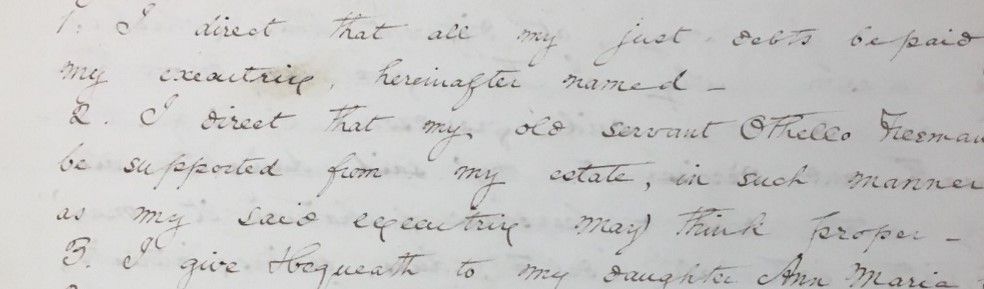 1. I direct that all my just debts be paid
my executrix, hereinafter named –
2. I direct that my old servant Othello Freeman
be supported from my estate, in such manner
as my said executrix may think proper –
3. I give & bequeath to my daughter Ann Maria